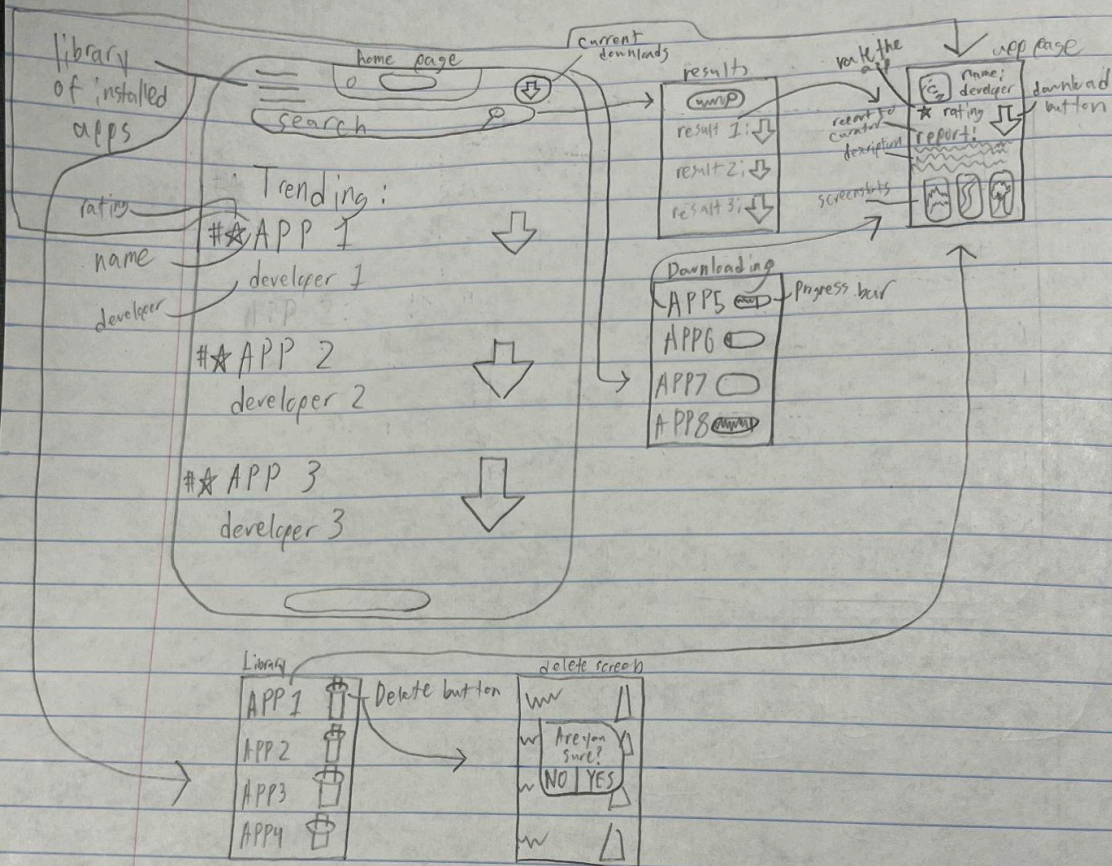 library
of installed
apps
home page
current
downloads
search
Trending:
rating
#☆ APP 1
name
developer 1
developer
#☆ APP 2
developer 2
#☆ APP 3
developer 3
results
result 1:
result 2:
result 3:
rate the
app
app page
name:
developer
☆ rating
download
button
report to
curator
report!
description
screenshots
Downloading
APP5
Progress bar
APP6
APP7
APP8
Library
APP 1
Delete button
APP 2
APP3
APP4
delete screen
Are you
sure?
NO YES